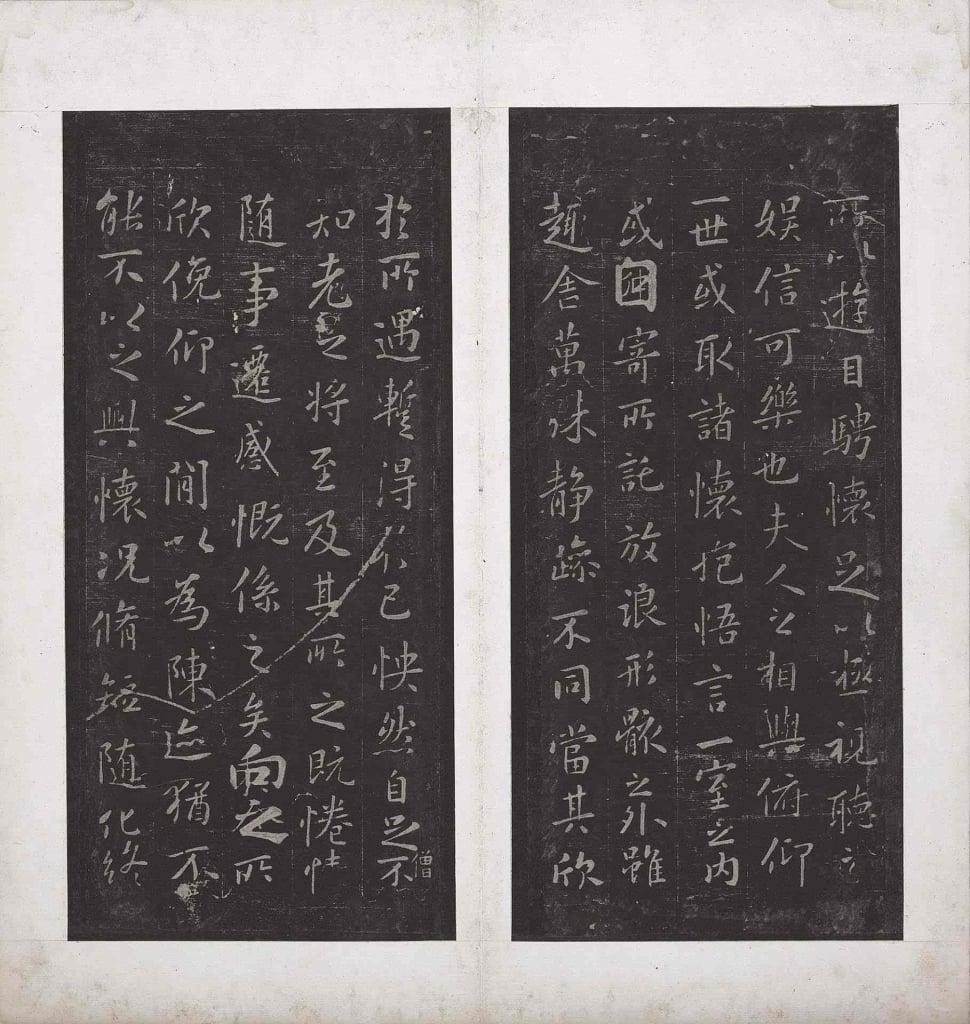 所以遊目騁懷足以極視聽之
娛信可樂也夫人之相與俯仰
一世或取諸懷抱悟言一室之内
或因寄所託放浪形骸之外雖
趣舍萬殊静躁不同當其欣
於所遇暫得於己怏然自足不
僧
知老之將至及其所之既惓情
随事遷感慨係之矣向之所
欣俛仰之閒以為陳迹猶不
能不以之興懷況脩短随化終